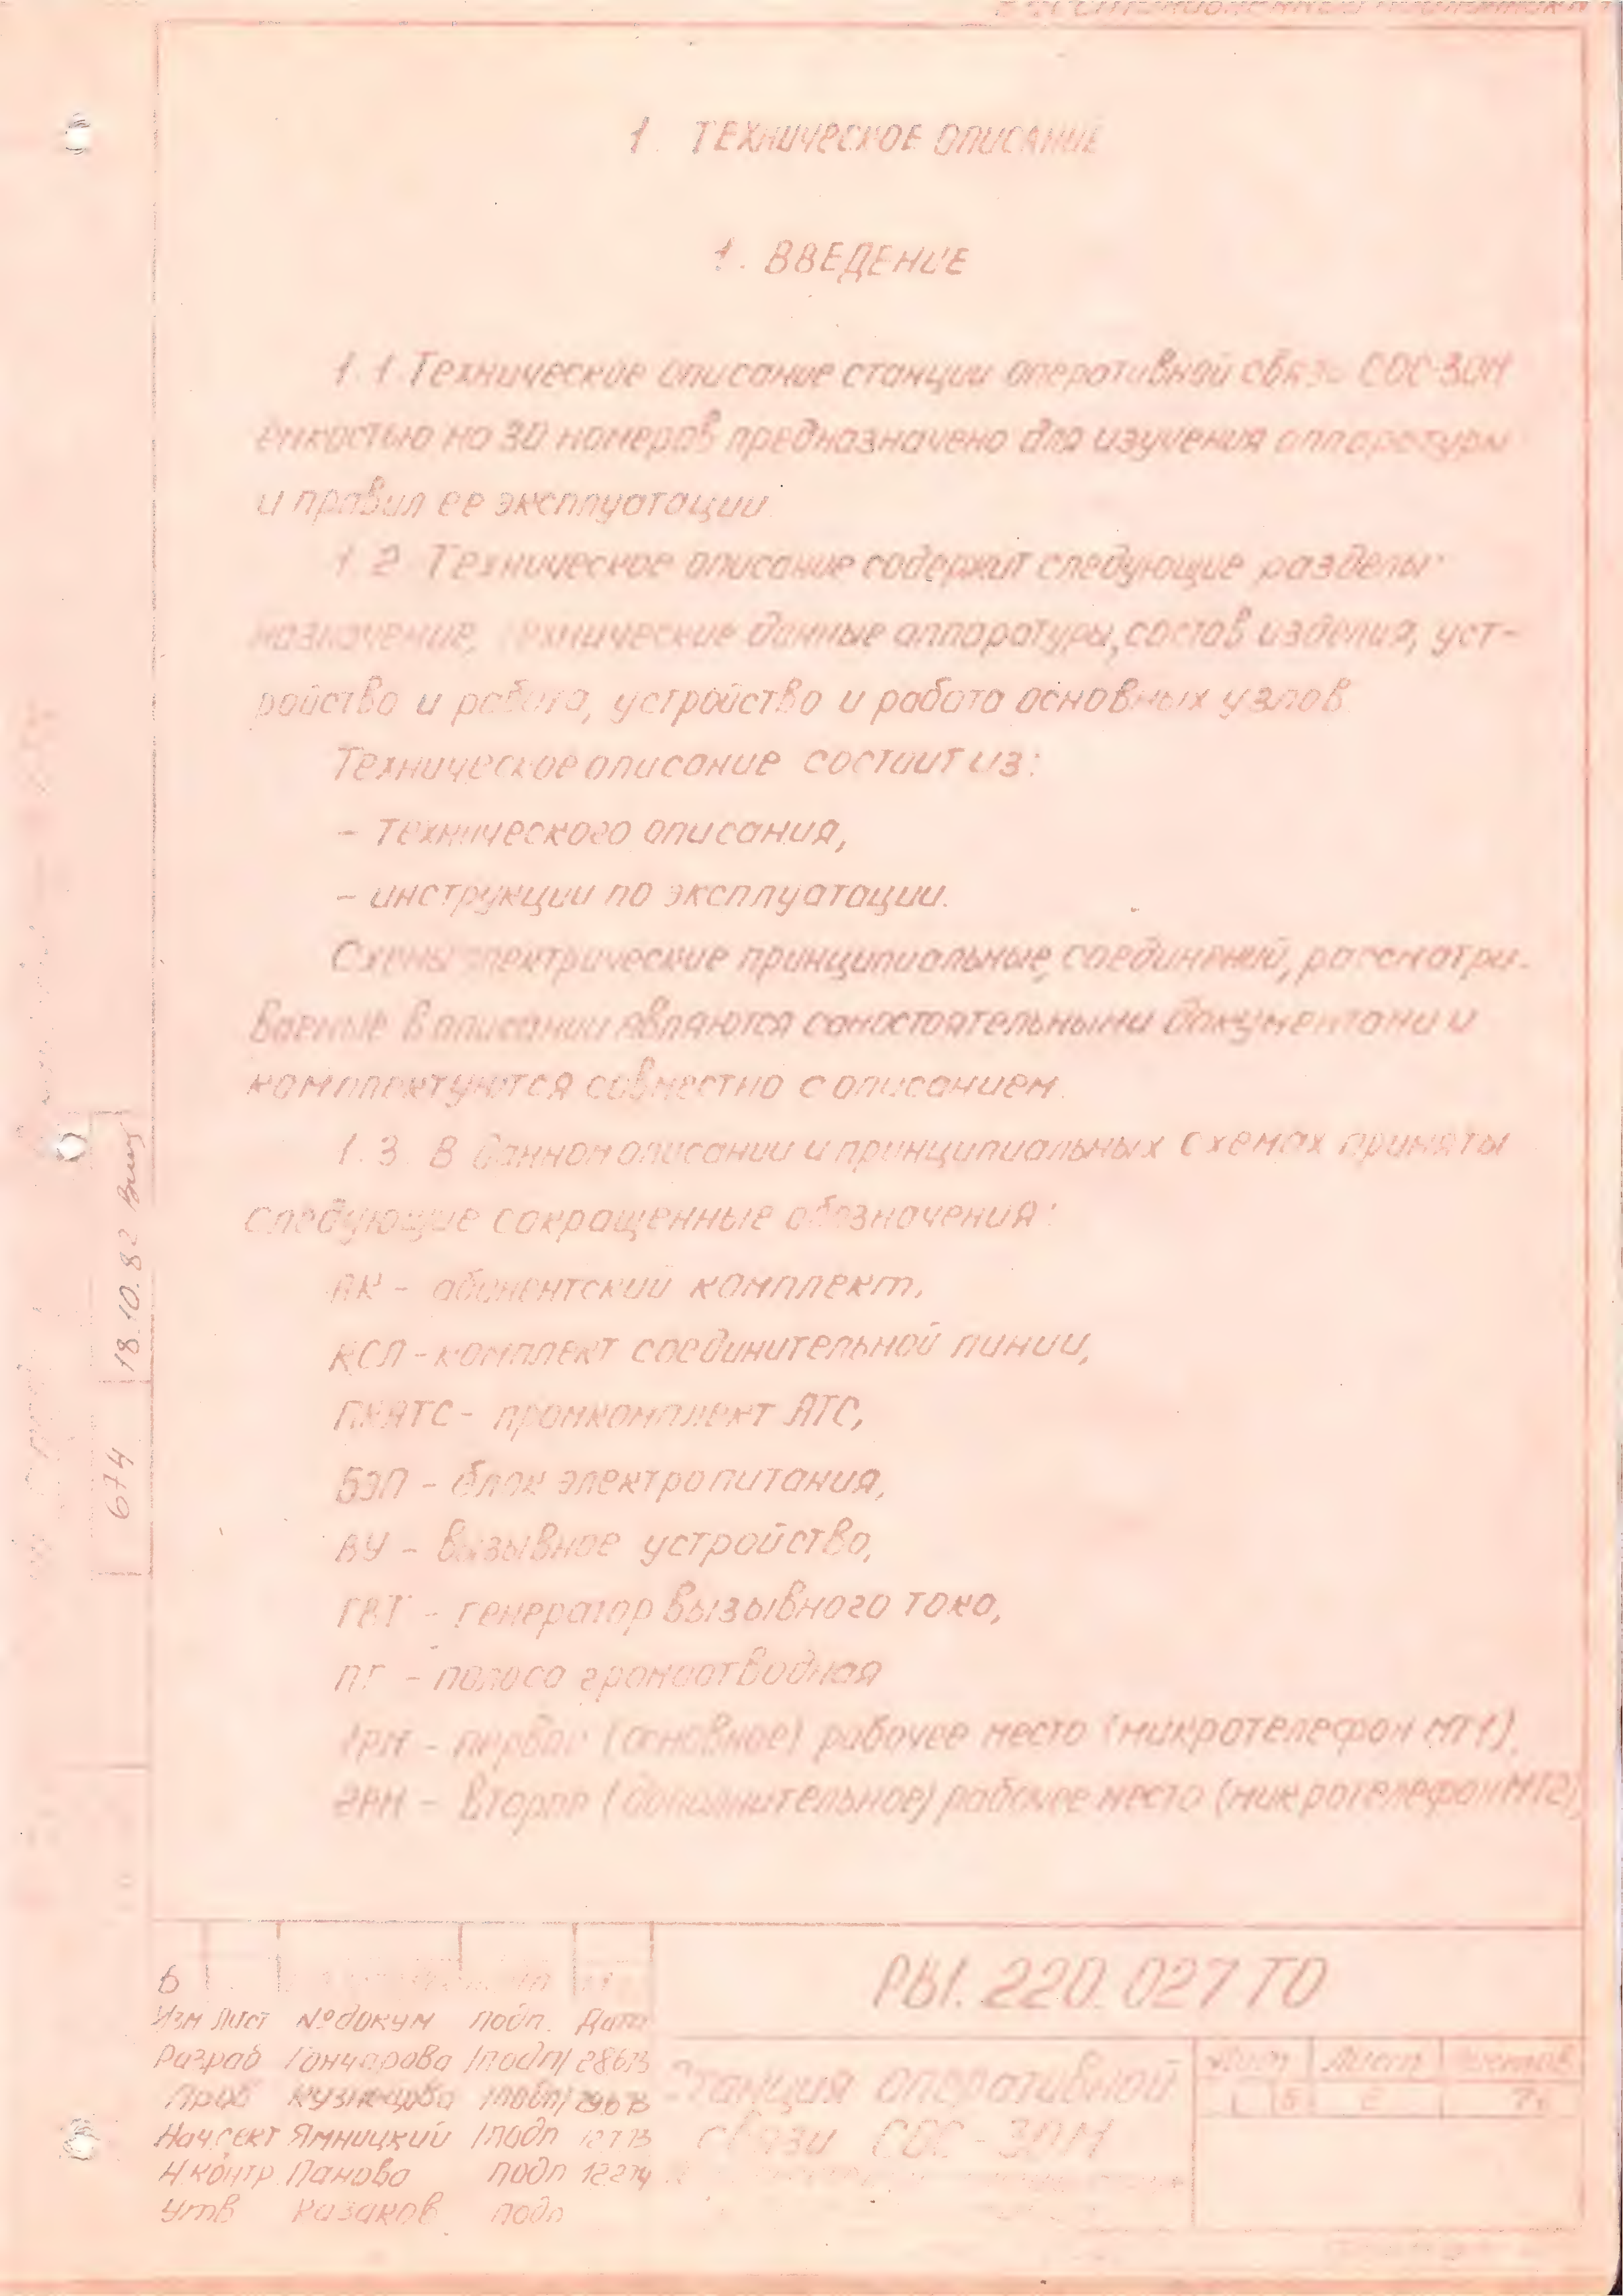 1. ТЕХНИЧЕСКОЕ ОПИСАНИЕ
1. ВВЕДЕНИЕ
1.1. Техническое описание станции оперативной связи СОС-30М
ёмкостью на 30 номеров предназначено для изучения аппаратуры
и правил ее эксплуатации
1.2. Техническое описание содержит следующие разделы:
назначение, технические данные аппаратуры, состав изделия, уст-
ройство и работа, устройство и работа основных узлов
Техническое описание состоит из:
- технического описания,
- инструкции по эксплуатации.
Схемы электрические принципиальные, соединений, рассматри-
ваемые в описании являются самостоятельными документами и
комплектуются совместно с описанием.
1.3. В данном описании и принципиальных схемах приняты
следующие сокращенные обозначения:
АК - абонентский комплект,
КСЛ - комплект соединительной линии,
ПКАТС - промкомплект АТС,
БЭП - блок электропитания,
ВУ - вызывное устройство,
ГВТ - генератор вызывного тока,
ПГ - полоса громоотводная
1РМ - первое (основное) рабочее место (микротелефон МТ1),
2РМ - второе (дополнительное) рабочее место (микротелефон МТ2)
674 18.10.82
6
Изм Лист № докум подп. Дата
РЫ1.220.027 ТО
Разраб Гончарова /подп/ 28673
Пров Кузнецова /подп/ 29673
Нач сект Ямницкий /подп 12773
Н.контр. Панова подп 12274
Утв Казаков подп
Станция оперативной
связи СОС-30М
Лит Лист Листов